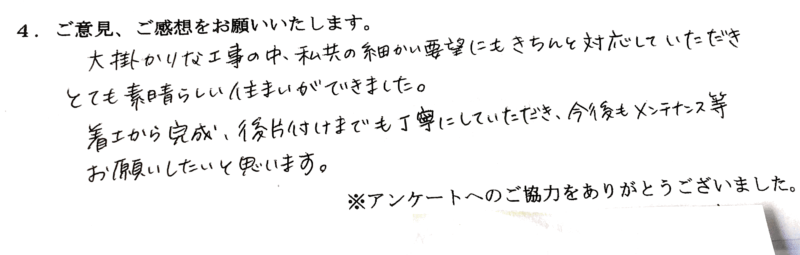 4．ご意見、ご感想をお願いいたします。
大掛かりな工事の中、私共の細かい要望にもきちんと対応していただき
とても素晴らしい住まいができました。
着工から完成、後片付けまでも丁寧にしていただき、今後もメンテナンス等
お願いしたいと思います。
※アンケートへのご協力をありがとうございました。